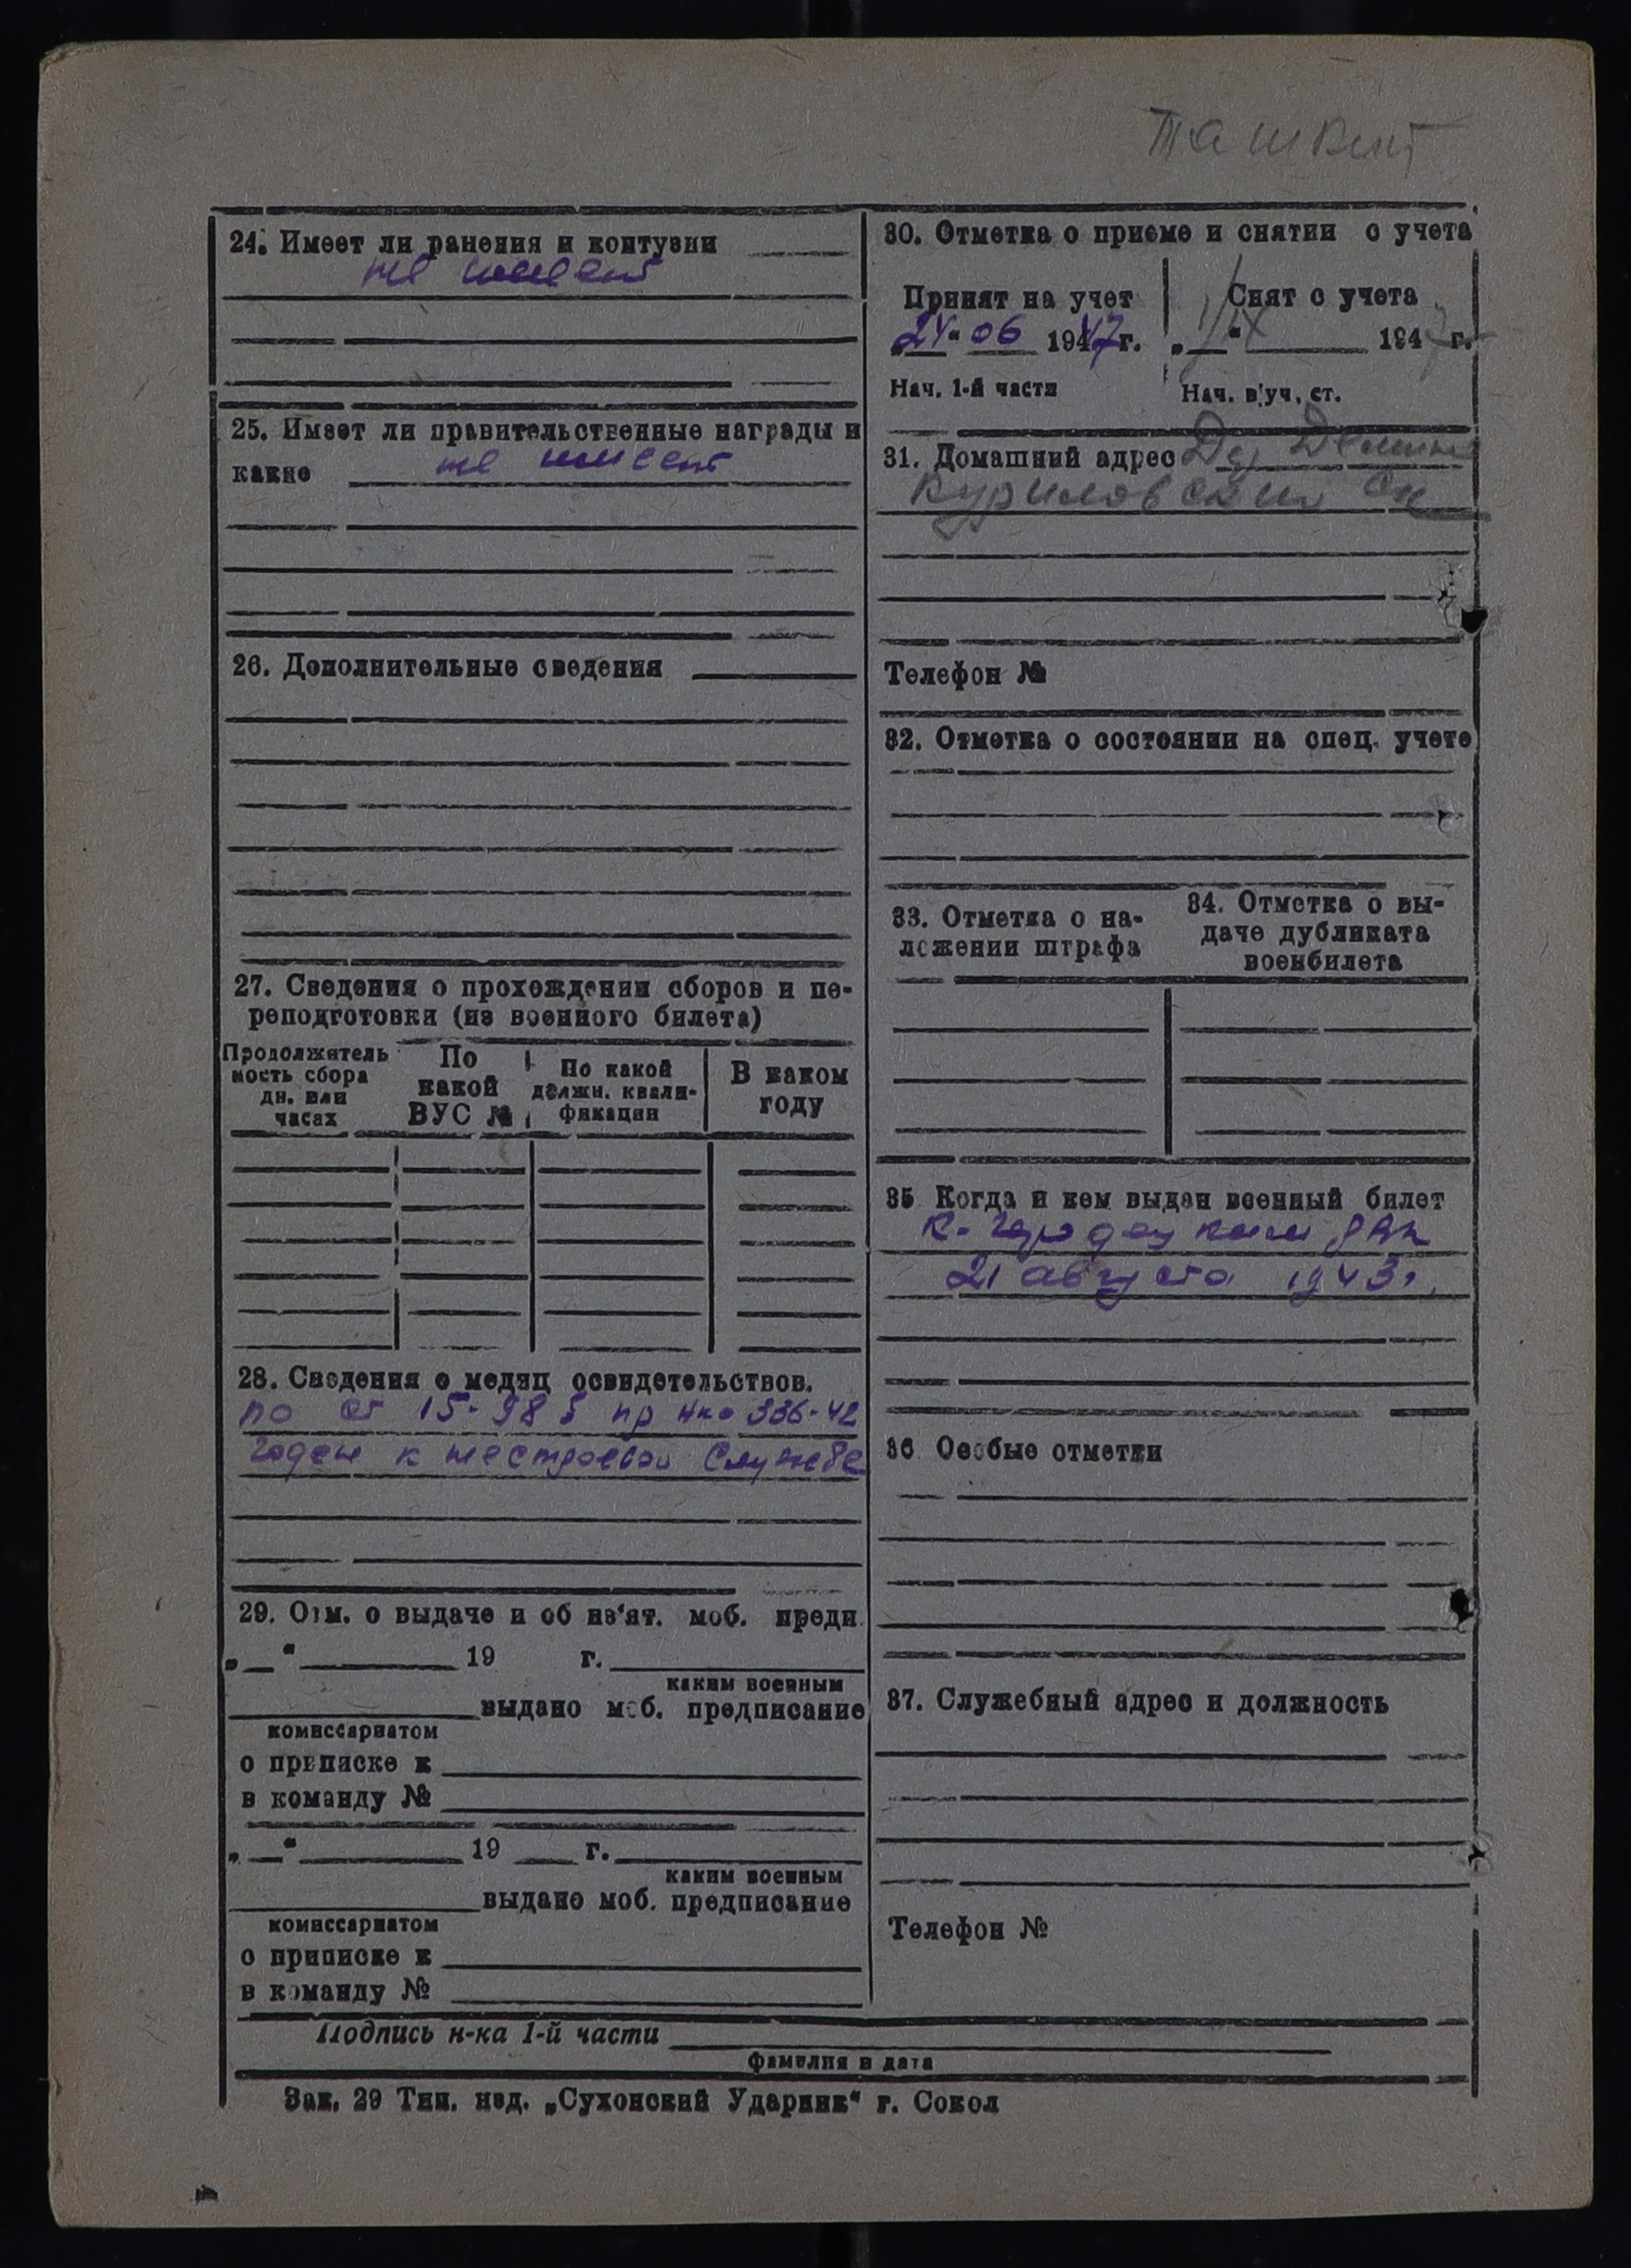 Ташкент
24. Имеет ли ранения и контузии
не имеет
25. Имеет ли правительственные награды и
какие не имеет
26. Дополнительные сведения
27. Сведения о прохождении сборов и пе-
реподготовки (из военного билета)
Продолжитель
ность сбора
дн. или
часах
По
какой
ВУС №
По какой
должн. квали-
фикации
В каком
году
28. Сведения о медиц освидетельствов.
по ст 15- пр нко 336-42
годен к нестроевой службе
29. Отм. о выдаче и об из'ят. моб. предп.
„ “ 19 г.
каким военным
выдано моб. предписание
комиссариатом
о приписке к
в команду №
„ “ 19 г.
каким военным
выдано моб. предписание
комиссариатом
о приписке к
в команду №
30. Отметка о приеме и снятии с учета
Принят на учет
„24“ 06 1947 г.
Нач. 1-й части
Снят с учета
1/IX 1947 г.
Нач. в/уч. ст.
31. Домашний адрес Дер
Куриловский
Телефон №
32. Отметка о состоянии на спец. учете
33. Отметка о на-
ложении штрафа
34. Отметка о вы-
даче дубликата
военбилета
35 Когда и кем выдан военный билет
К-Городецким РВК
21 августа 1943 г.
36 Особые отметки
37. Служебный адрес и должность
Телефон №
Подпись н-ка 1-й части
фамилия и дата
Зак. 29 Тип. изд. „Сухонский Ударник“ г. Сокол